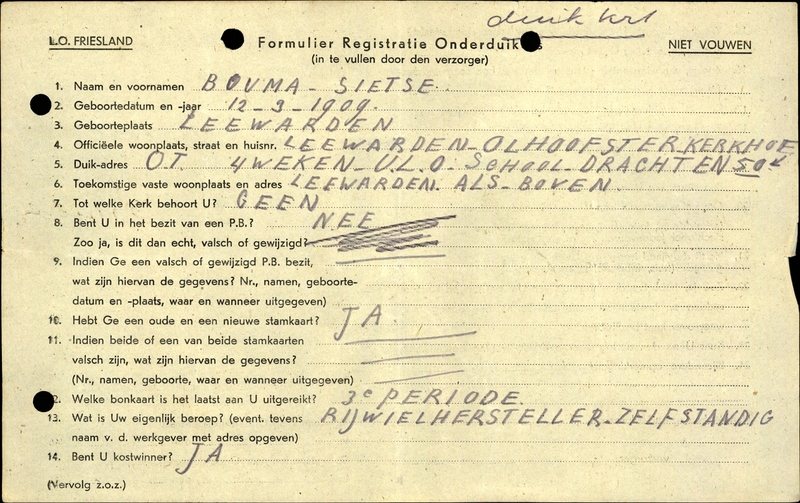 duik krt
L.O. FRIESLAND
Formulier Registratie Onderduikers
NIET VOUWEN
(in te vullen door den verzorger)
1. Naam en voornamen BOUMA - SIETSE.
2. Geboortedatum en -jaar 12-3-1909.
3. Geboorteplaats LEEWARDEN
4. Officiëele woonplaats, straat en huisnr. LEEWARDEN-OLHOOFSTERKERKHOF
5. Duik-adres O.T. 4 WEKEN-U.L.O. SCHOOL-DRACHTEN
6. Toekomstige vaste woonplaats en adres LEEWARDEN. ALS-BOVEN
7. Tot welke Kerk behoort U? GEEN
8. Bent U in het bezit van een P.B.? NEE
Zoo ja, is dit dan echt, valsch of gewijzigd?
9. Indien Ge een valsch of gewijzigd P.B. bezit,
wat zijn hiervan de gegevens? Nr., namen, geboorte-
datum en -plaats, waar en wanneer uitgegeven)
10. Hebt Ge een oude en een nieuwe stamkaart? JA
11. Indien beide of een van beide stamkaarten
valsch zijn, wat zijn hiervan de gegevens?
(Nr., namen, geboorte, waar en wanneer uitgegeven)
2. Welke bonkaart is het laatst aan U uitgereikt? 3e PERIODE.
13. Wat is Uw eigenlijk beroep? (event. tevens RIJWIELHERSTELLER-ZELFSTANDIG
naam v. d. werkgever met adres opgeven)
14. Bent U kostwinner? JA
(Vervolg z.o.z.)